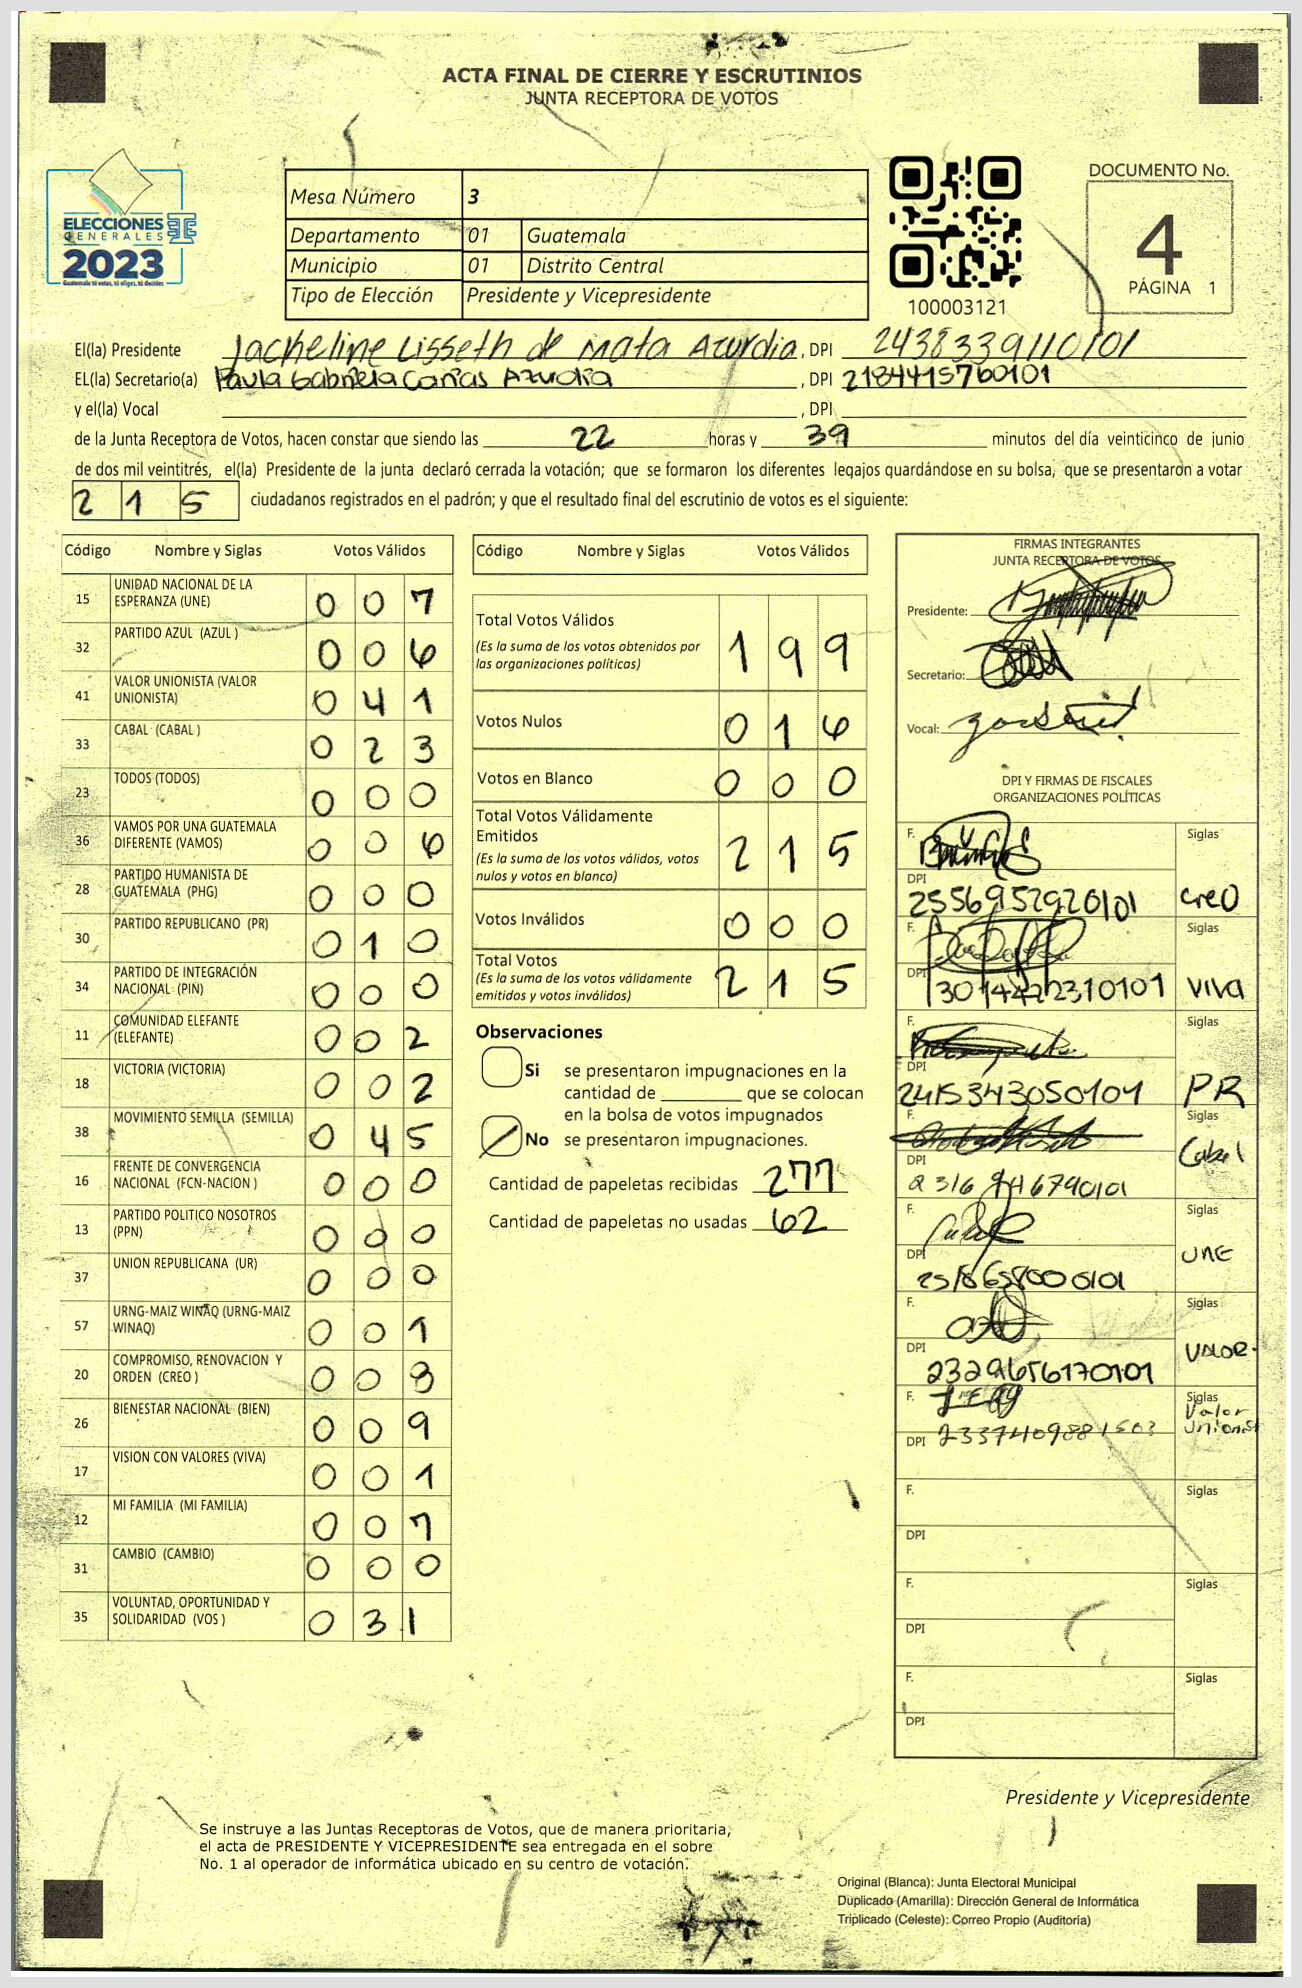 ACTA FINAL DE CIERRE Y ESCRUTINIOS
JUNTA RECEPTORA DE VOTOS
ELECCIONES
GENERALES
2023
Guatemala tú votas, tú eliges, tú decides
Mesa Número 3
Departamento 01 Guatemala
Municipio 01 Distrito Central
Tipo de Elección Presidente y Vicepresidente
100003121
DOCUMENTO No.
4
PÁGINA 1
El(la) Presidente Jacheline Lisseth de Mata Azurdia, DPI 2438339110101
EL(la) Secretario(a) Paula Gabriela Canias Azurdia, DPI 2184415760101
y el(la) Vocal , DPI
de la Junta Receptora de Votos, hacen constar que siendo las 22 horas y 39 minutos del día veinticinco de junio
de dos mil veintitrés, el(la) Presidente de la junta declaró cerrada la votación; que se formaron los diferentes legajos quardándose en su bolsa, que se presentaron a votar
215 ciudadanos registrados en el padrón; y que el resultado final del escrutinio de votos es el siguiente:
Código Nombre y Siglas Votos Válidos
15 UNIDAD NACIONAL DE LA ESPERANZA (UNE) 0 0 7
32 PARTIDO AZUL (AZUL ) 0 0 6
41 VALOR UNIONISTA (VALOR UNIONISTA) 0 4 1
33 CABAL (CABAL ) 0 2 3
23 TODOS (TODOS) 0 0 0
36 VAMOS POR UNA GUATEMALA DIFERENTE (VAMOS) 0 0 6
28 PARTIDO HUMANISTA DE GUATEMALA (PHG) 0 0 0
30 PARTIDO REPUBLICANO (PR) 0 1 0
34 PARTIDO DE INTEGRACIÓN NACIONAL (PIN) 0 0 0
11 COMUNIDAD ELEFANTE (ELEFANTE) 0 0 2
18 VICTORIA (VICTORIA) 0 0 2
38 MOVIMIENTO SEMILLA (SEMILLA) 0 4 5
16 FRENTE DE CONVERGENCIA NACIONAL (FCN-NACION ) 0 0 0
13 PARTIDO POLITICO NOSOTROS (PPN) 0 0 0
37 UNION REPUBLICANA (UR) 0 0 0
57 URNG-MAIZ WINAQ (URNG-MAIZ WINAQ) 0 0 1
20 COMPROMISO, RENOVACION Y ORDEN (CREO ) 0 0 8
26 BIENESTAR NACIONAL (BIEN) 0 0 9
17 VISION CON VALORES (VIVA) 0 0 1
12 MI FAMILIA (MI FAMILIA) 0 0 7
31 CAMBIO (CAMBIO) 0 0 0
35 VOLUNTAD, OPORTUNIDAD Y SOLIDARIDAD (VOS ) 0 3 1
Código Nombre y Siglas Votos Válidos
Total Votos Válidos 1 9 9
(Es la suma de los votos obtenidos por
las organizaciones políticas)
Votos Nulos 0 1 6
Votos en Blanco 0 0 0
Total Votos Válidamente
Emitidos 2 1 5
(Es la suma de los votos válidos, votos
nulos y votos en blanco)
Votos Inválidos 0 0 0
Total Votos 2 1 5
(Es la suma de los votos válidamente
emitidos y votos inválidos)
Observaciones
Si se presentaron impugnaciones en la
cantidad de que se colocan
en la bolsa de votos impugnados
No se presentaron impugnaciones.
Cantidad de papeletas recibidas 277
Cantidad de papeletas no usadas 62
FIRMAS INTEGRANTES
JUNTA RECEPTORA DE VOTOS
Presidente:
Secretario:
Vocal:
DPI Y FIRMAS DE FISCALES
ORGANIZACIONES POLÍTICAS
F. Siglas
DPI 25569152920101 creo
F. Siglas
DPI VIVA
F. Siglas
DPI 2415343050101 PR
F. Siglas
DPI Cabal
F. Siglas
DPI UNE
F. Siglas
DPI 2329656170101 VALOR-
F. Siglas
DPI 2337409881503 Valor Unionist
F. Siglas
DPI
F. Siglas
DPI
F. Siglas
DPI
Presidente y Vicepresidente
Se instruye a las Juntas Receptoras de Votos, que de manera prioritaria,
el acta de PRESIDENTE Y VICEPRESIDENTE sea entregada en el sobre
No. 1 al operador de informática ubicado en su centro de votación.
Original (Blanca): Junta Electoral Municipal
Duplicado (Amarilla): Dirección General de Informática
Triplicado (Celeste): Correo Propio (Auditoría)